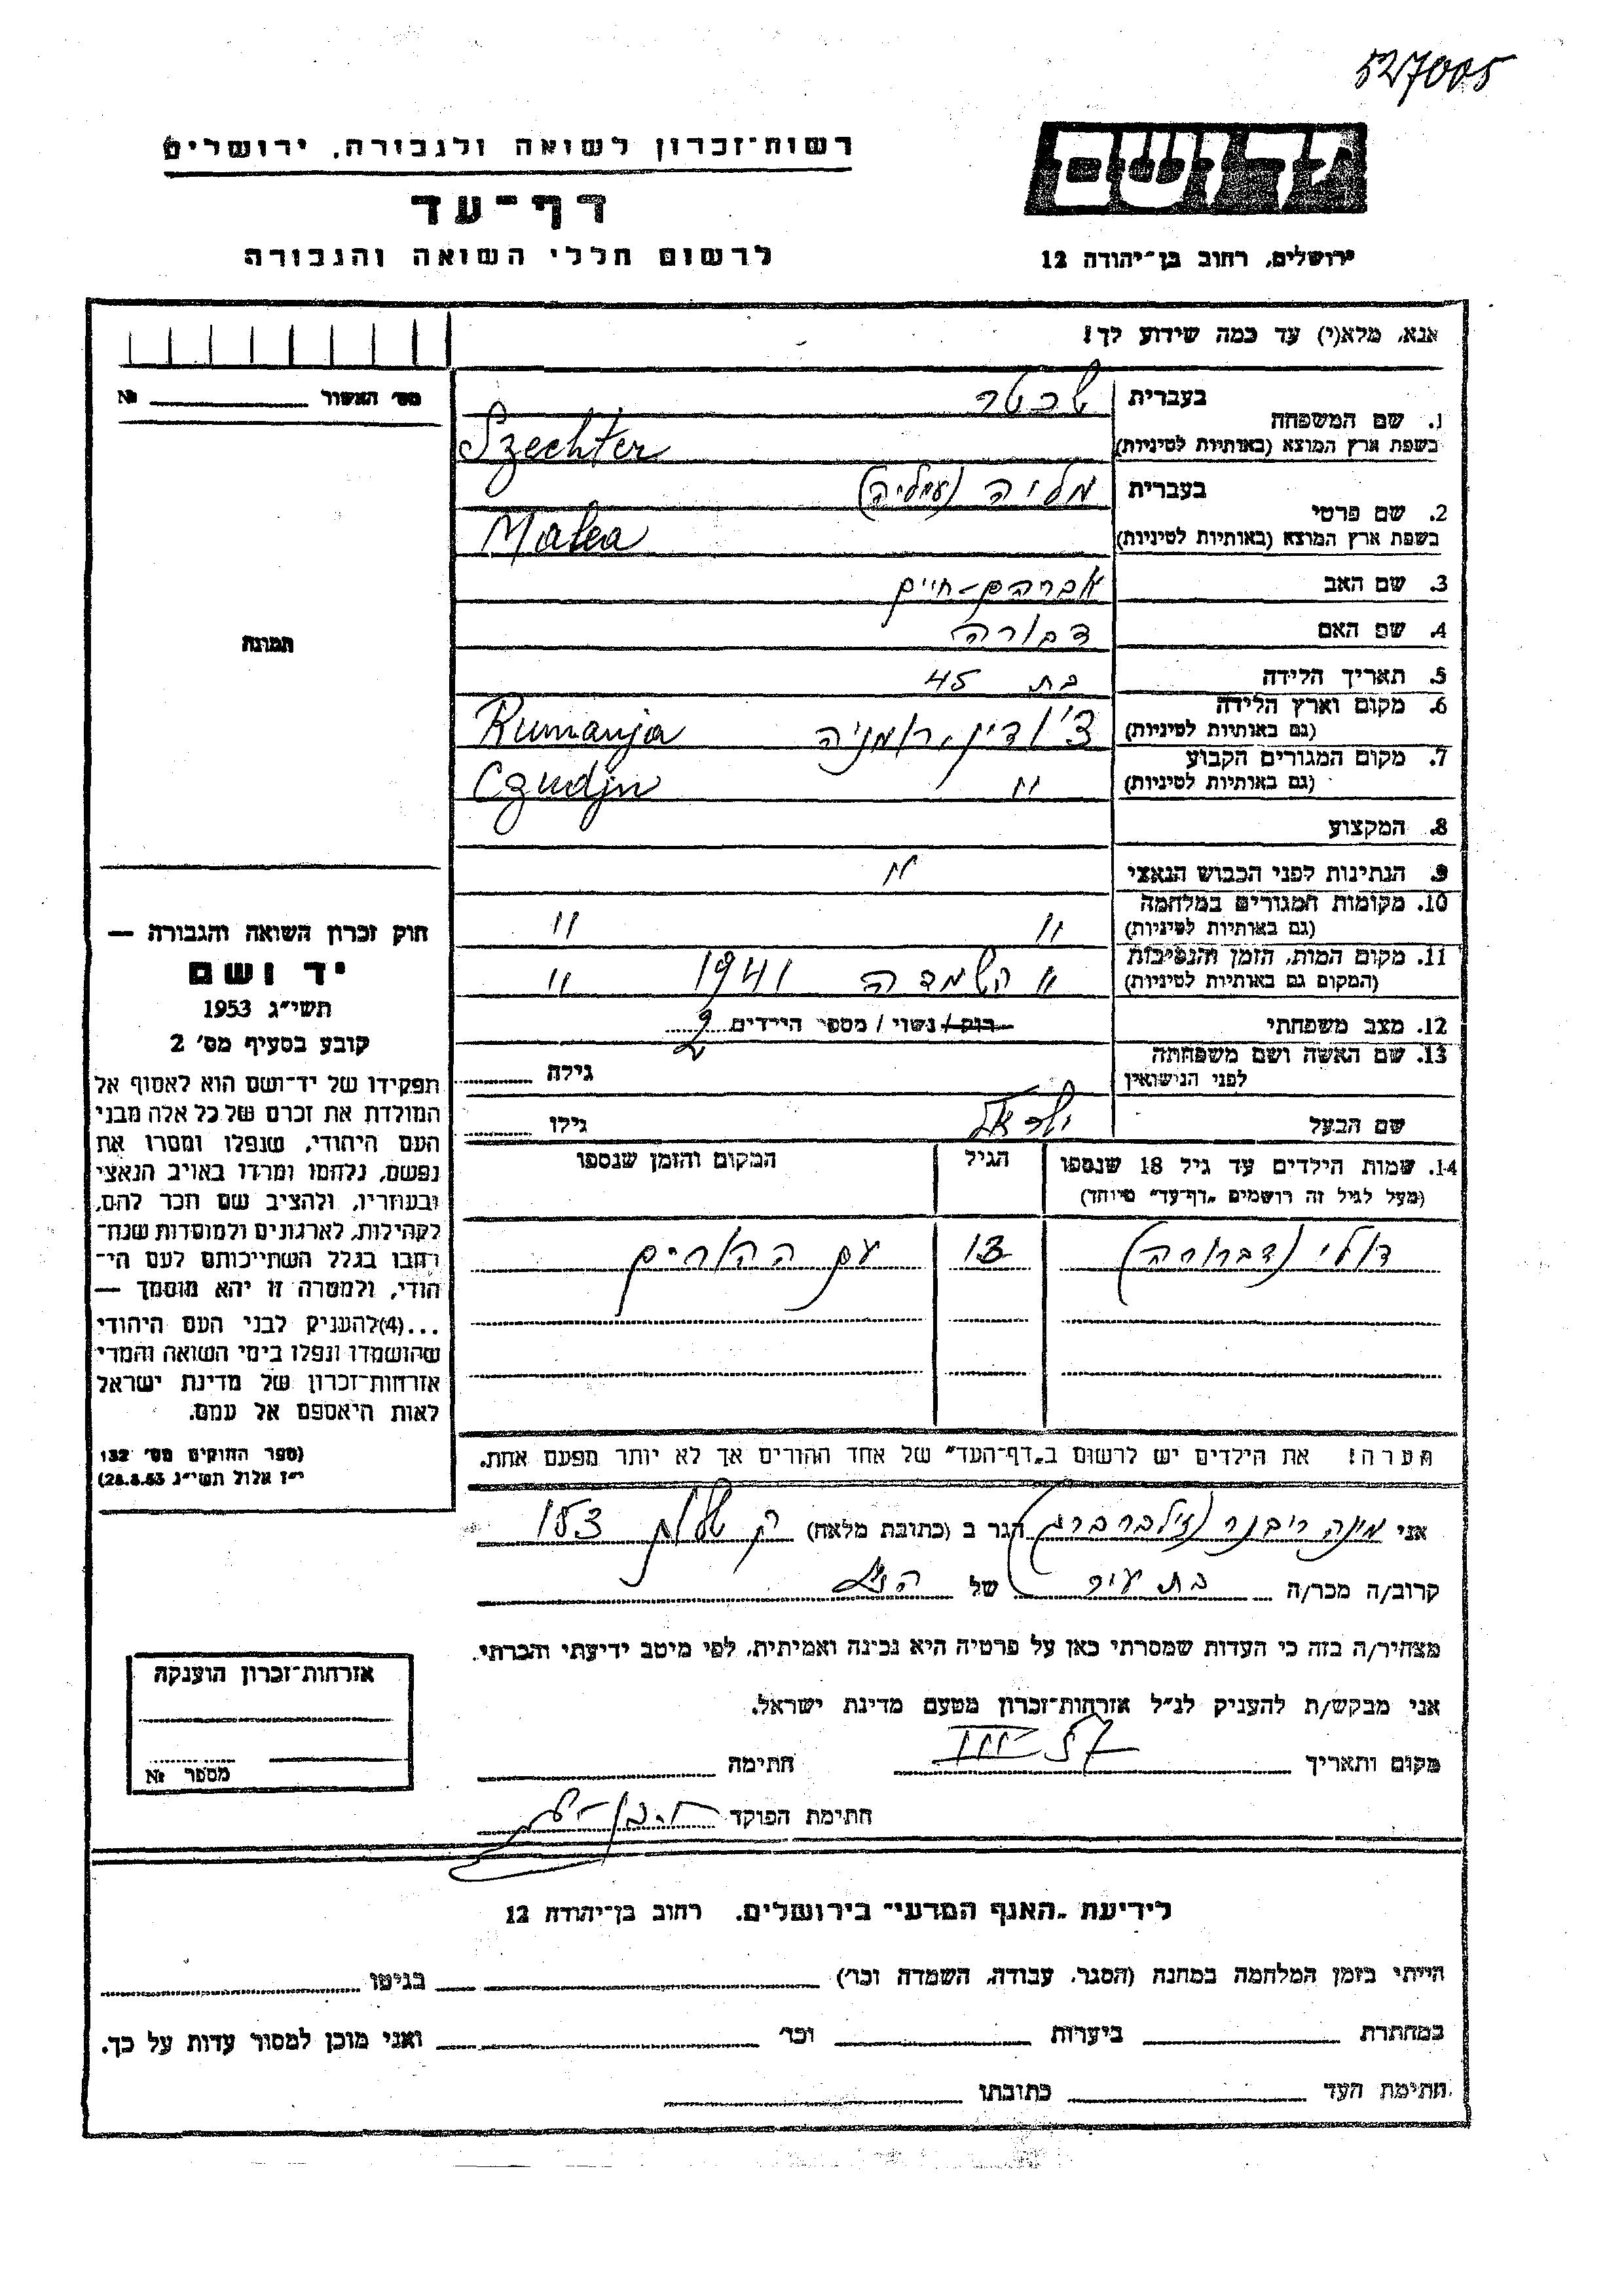 527005
רשות-זכרון לשואה ולגבורה, ירושלים
יד ושם
דף-עד
לרשום חללי השואה והגבורה
ירושלים, רחוב בן-יהודה 12
אנא, מלא(י) עד כמה שידוע לך!
מס׳ האשור № 
1. שם המשפחה
בעברית שכטר
בשפת ארץ המוצא (באותיות לטיניות) Szechter
2. שם פרטי
בעברית מליה (עמליה)
בשפת ארץ המוצא (באותיות לטיניות) Malea
3. שם האב אברהם-חיים
4. שם האם דבורה
5. תאריך הלידה בת 45
6. מקום וארץ הלידה צ'ודין, רומניה Rumanja
(גם באותיות לטיניות)
7. מקום המגורים הקבוע " Czudjn
(גם באותיות לטיניות)
8. המקצוע
9. הנתינות לפני הכבוש הנאצי "
10. מקומות המגורים במלחמה " "
(גם באותיות לטיניות)
11. מקום המות, הזמן והנסיבות " השמדה 1941 "
(המקום גם באותיות לטיניות)
12. מצב משפחתי רוק / נשוי / מספר הילדים 2
13. שם האשה ושם משפחתה
לפני הנישואין גילה
שם הבעל ישראל גילו
14. שמות הילדים עד גיל 18 שנספו הגיל המקום והזמן שנספו
(מעל לגיל זה רושמים „דף-עד" מיוחד)
דולי (דבורה) 13 עם ההורים
הערה! את הילדים יש לרשום ב„דף-העד" של אחד ההורים אך לא יותר מפעם אחת.
תמונה
חוק זכרון השואה והגבורה —
יד ושם
תשי״ג 1953
קובע בסעיף מס׳ 2
תפקידו של יד-ושם הוא לאסוף אל
המולדת את זכרם של כל אלה מבני
העם היהודי, שנפלו ומסרו את
נפשם, נלחמו ומרדו באויב הנאצי
ובעוזריו, ולהציב שם וזכר להם,
לקהילות, לארגונים ולמוסדות שנח-
רבו בגלל השתייכותם לעם הי-
הודי, ולמטרה זו יהא מוסמך —
...(4) להעניק לבני העם היהודי
שהושמדו ונפלו בימי השואה והמרי
אזרחות-זכרון של מדינת ישראל
לאות היאספם אל עמם.
(ספר החוקים מס׳ 132
י״ז אלול תשי״ג 28.8.53)
אני מינה ריבנר (זילברברג) הגר ב (כתובת מלאה) ק 153
קרוב/ה מכר/ה בת עיר של הנ״ל
מצהיר/ה בזה כי העדות שמסרתי כאן על פרטיה היא נכונה ואמיתית, לפי מיטב ידיעתי והכרתי.
אני מבקש/ת להעניק לנ״ל אזרחות-זכרון מטעם מדינת ישראל.
מקום ותאריך חתימה
חתימת הפוקד
אזרחות-זכרון הוענקה
מספר №
לידיעת „האגף המדעי" בירושלים, רחוב בן-יהודה 12
הייתי בזמן המלחמה במחנה (הסגר, עבודה, השמדה וכו׳) בגיטו
במחתרת ביערות וכו׳ ואני מוכן למסור עדות על כך.
חתימת העד כתובתו